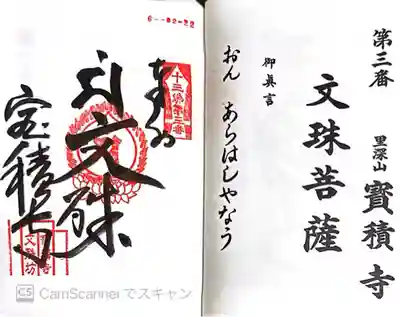 第三番
里深山 寳積寺
文珠菩薩
御真言
おん あらはしやなう
6--02-22
十三佛第三番
文殊
宝積寺
CS CamScannerでスキャン